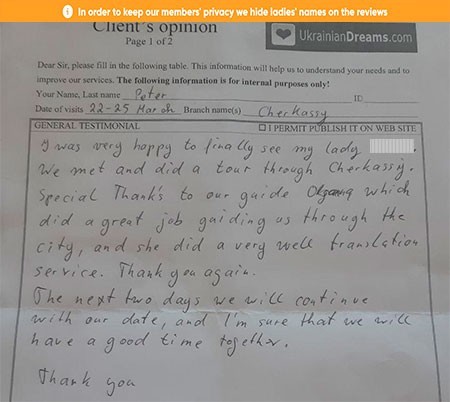 In order to keep our members' privacy we hide ladies' names on the reviews
Client's opinion
Page 1 of 2
UkrainianDreams.com
Dear Sir, please fill in the following table. This information will help us to understand your needs and to
improve our services. The following information is for internal purposes only!
Your Name, Last name Peter ID
Date of visits 22-25 March Branch name(s) Cherkassy
GENERAL TESTIMONIAL I PERMIT PUBLISH IT ON WEB SITE
I was very happy to finally see my lady .
We met and did a tour through Cherkassij.
Special Thank's to our guide which
did a great job guiding us through the
city, and she did a very well translation
service. Thank you again.
The next two days we will continue
with our date, and I'm sure that we will
have a good time together.
Thank you